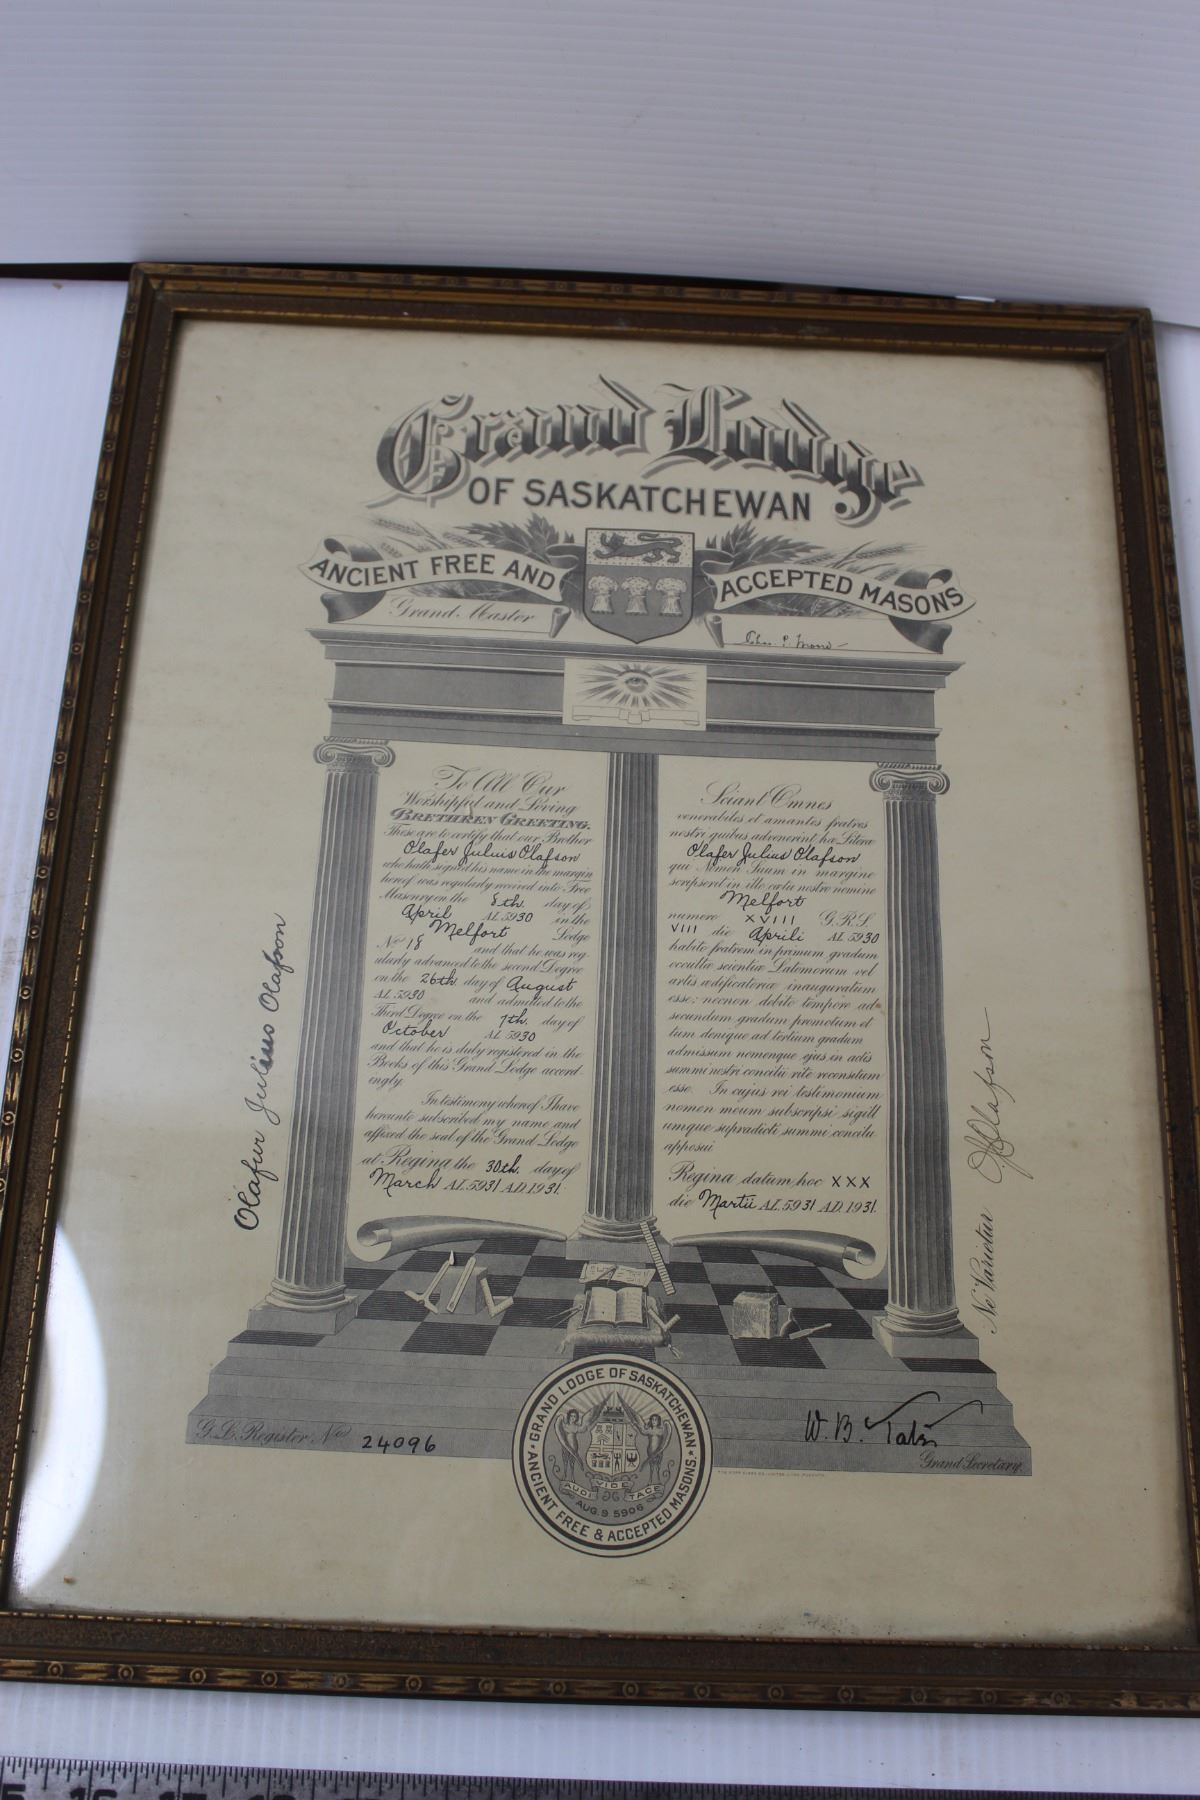 Grand Lodge
OF SASKATCHEWAN
ANCIENT FREE AND
ACCEPTED MASONS
Grand Master
To All Our
Worshipful and Loving
BRETHREN GREETING.
These are to certify that our Brother
Olafer Julius Olafson
who hath signed his name in the margin
hereof was regularly received into Free
Masonry on the 8th. day of
April AL 5930 in the
Melfort Lodge
No 18 and that he was reg-
ularly advanced to the second Degree
on the 26th. day of August
AL 5930 and admitted to the
Third Degree on the 7th. day of
October AL 5930
and that he is duly registered in the
Books of this Grand Lodge accord-
ingly.
In testimony whereof I have
hereunto subscribed my name and
affixed the seal of the Grand Lodge
at Regina the 30th. day of
March AL 5931 A.D. 1931.
Sciant Omnes
venerabiles et amantes fratres
nostri quibus advenerint hæ Literæ
Olafer Julius Olafson
qui Nomen Suum in margine
scripserit in illo cœtu nostro nomine
Melfort
numero XVIII G.R.S.
VIII die Aprili AL 5930
habito fratrem in primum gradum
occultæ scientiæ Latomorum vel
artis ædificatoriæ inauguratum
esse; necnon debito tempore ad
secundum gradum promotum et
tum denique ad tertium gradum
admissum nomenque ejus in actis
summi nostri concilii rite recensitum
esse. In cujus rei testimonium
nomen meum subscripsi sigill
umque supradicti summi concilii
apposui
Regina datum hoc XXX
die Martii AL 5931 A.D. 1931.
Olafur Julius Olafson
Ne Varietur O J Olafson
G. L. Register No 24096
W. B. Tate
Grand Secretary.
GRAND LODGE OF SASKATCHEWAN
ANCIENT FREE & ACCEPTED MASONS.
AUDI VIDE TACE
AUG. 9 5906
15 16 17 18